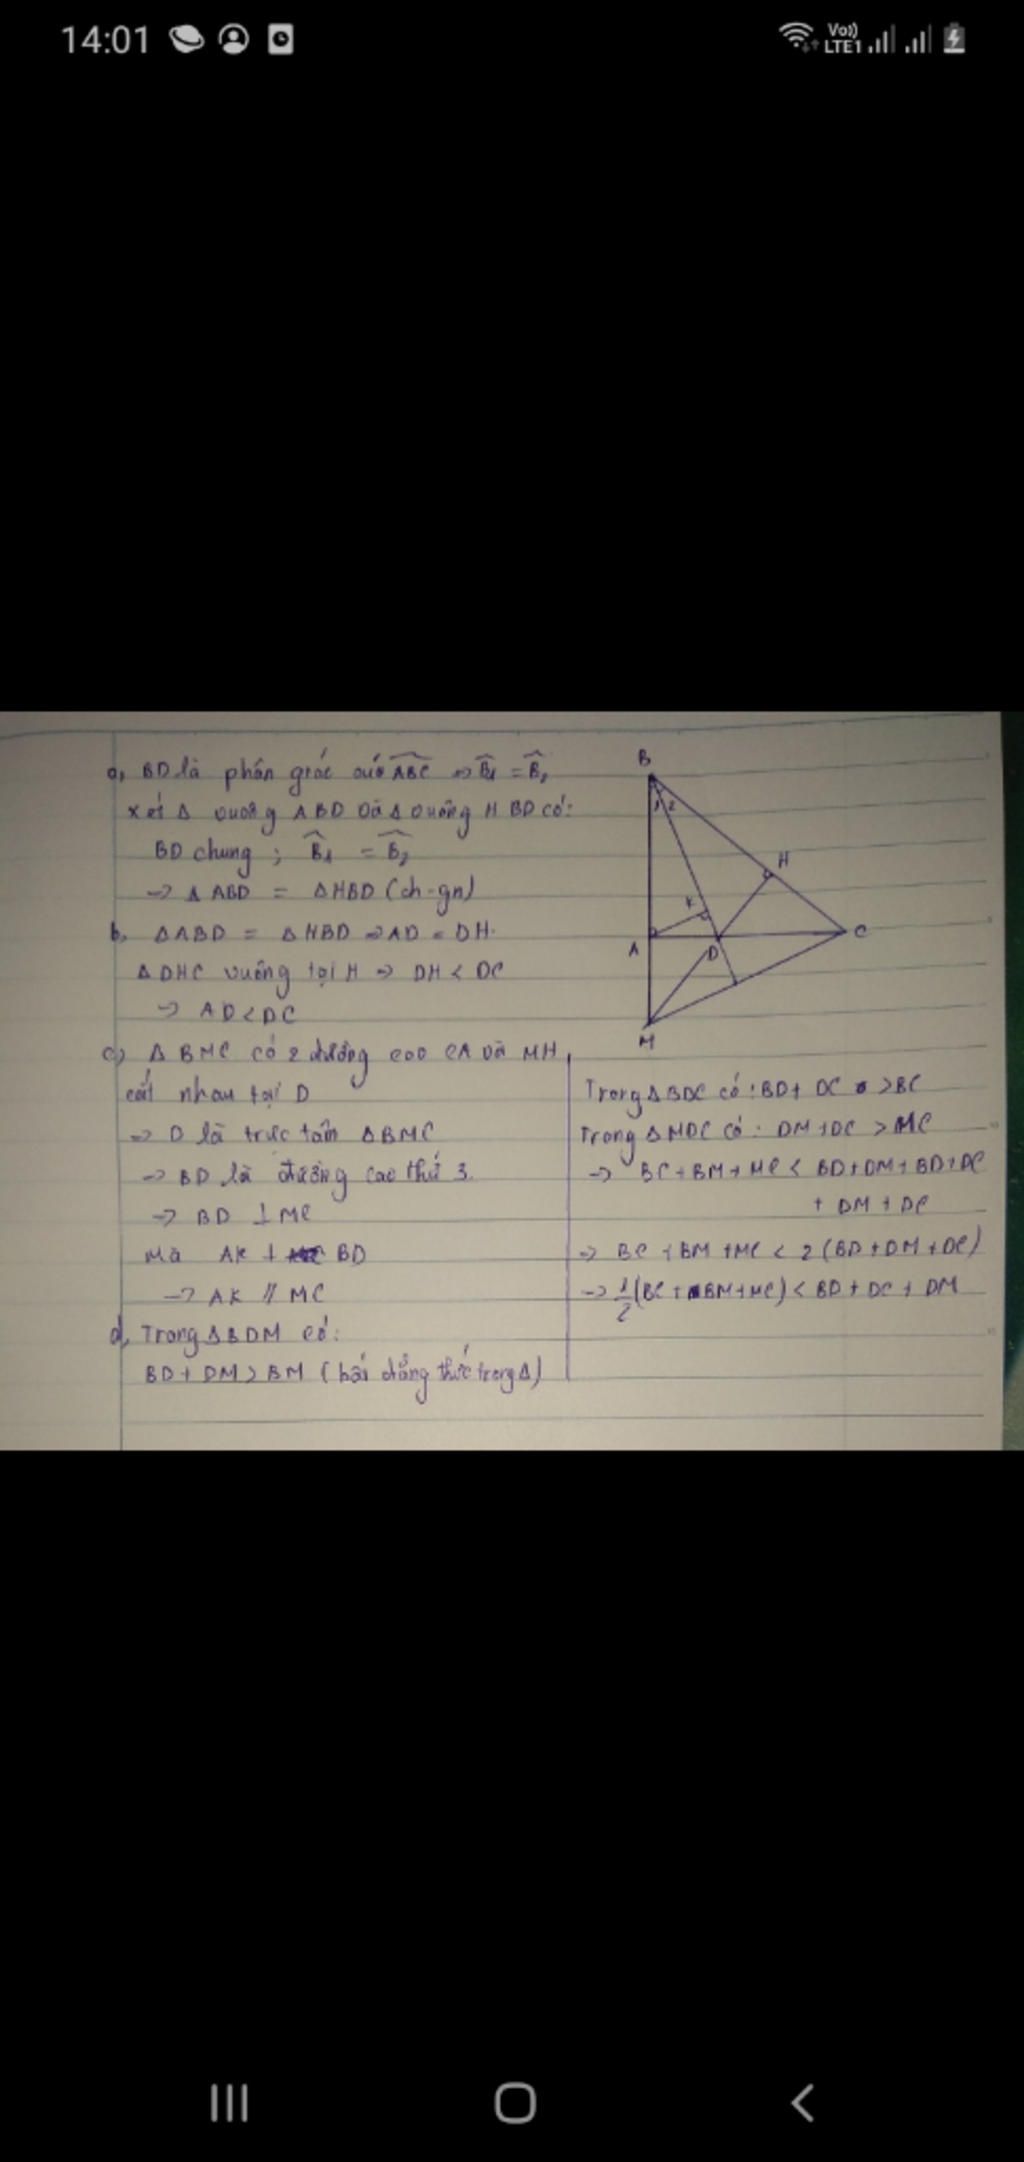 14:01
Vo)) LTE1
a, BD là phân giác của ABC => B1 = B2
xét Δ vuông ABD và Δ vuông HBD có:
BD chung ; B1 = B2
-> Δ ABD = ΔHBD (ch-gn)
b, ΔABD = ΔHBD => AD = DH.
ΔDHC vuông tại H => DH < DC
-> AD < DC
c) Δ BMC có 2 đường cao CA và MH
cắt nhau tại D
=> D là trực tâm ΔBMC
-> BD là đường cao thứ 3.
-> BD ⊥ MC
Mà AK ⊥ BD
-> AK // MC
d, Trong ΔBDM có:
BD + DM > BM (bất đẳng thức trong Δ)
B
1 2
H
K
A
D
C
M
Trong ΔBDC có: BD + DC > BC
Trong ΔMDC có: DM + DC > MC
-> BC + BM + MC < BD + DM + BD + DC
+ DM + DC
=> BC + BM + MC < 2 (BD + DM + DC)
-> 1/2 (BC + BM + MC) < BD + DC + DM